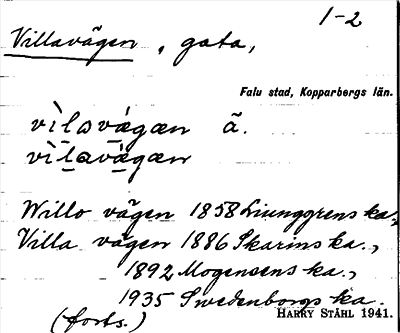 1-2
Villavägen, gata,
Falu stad, Kopparbergs län.
vìlavä́gæn ã.
vìlavä́gæn
Willo vägen 1858 Liunggrens ka.,
Villa vägen 1886 Skarins ka.,
1892 Mogensens ka.,
1935 Swedenborgs ka.
(forts.)
HARRY STÅHL 1941.